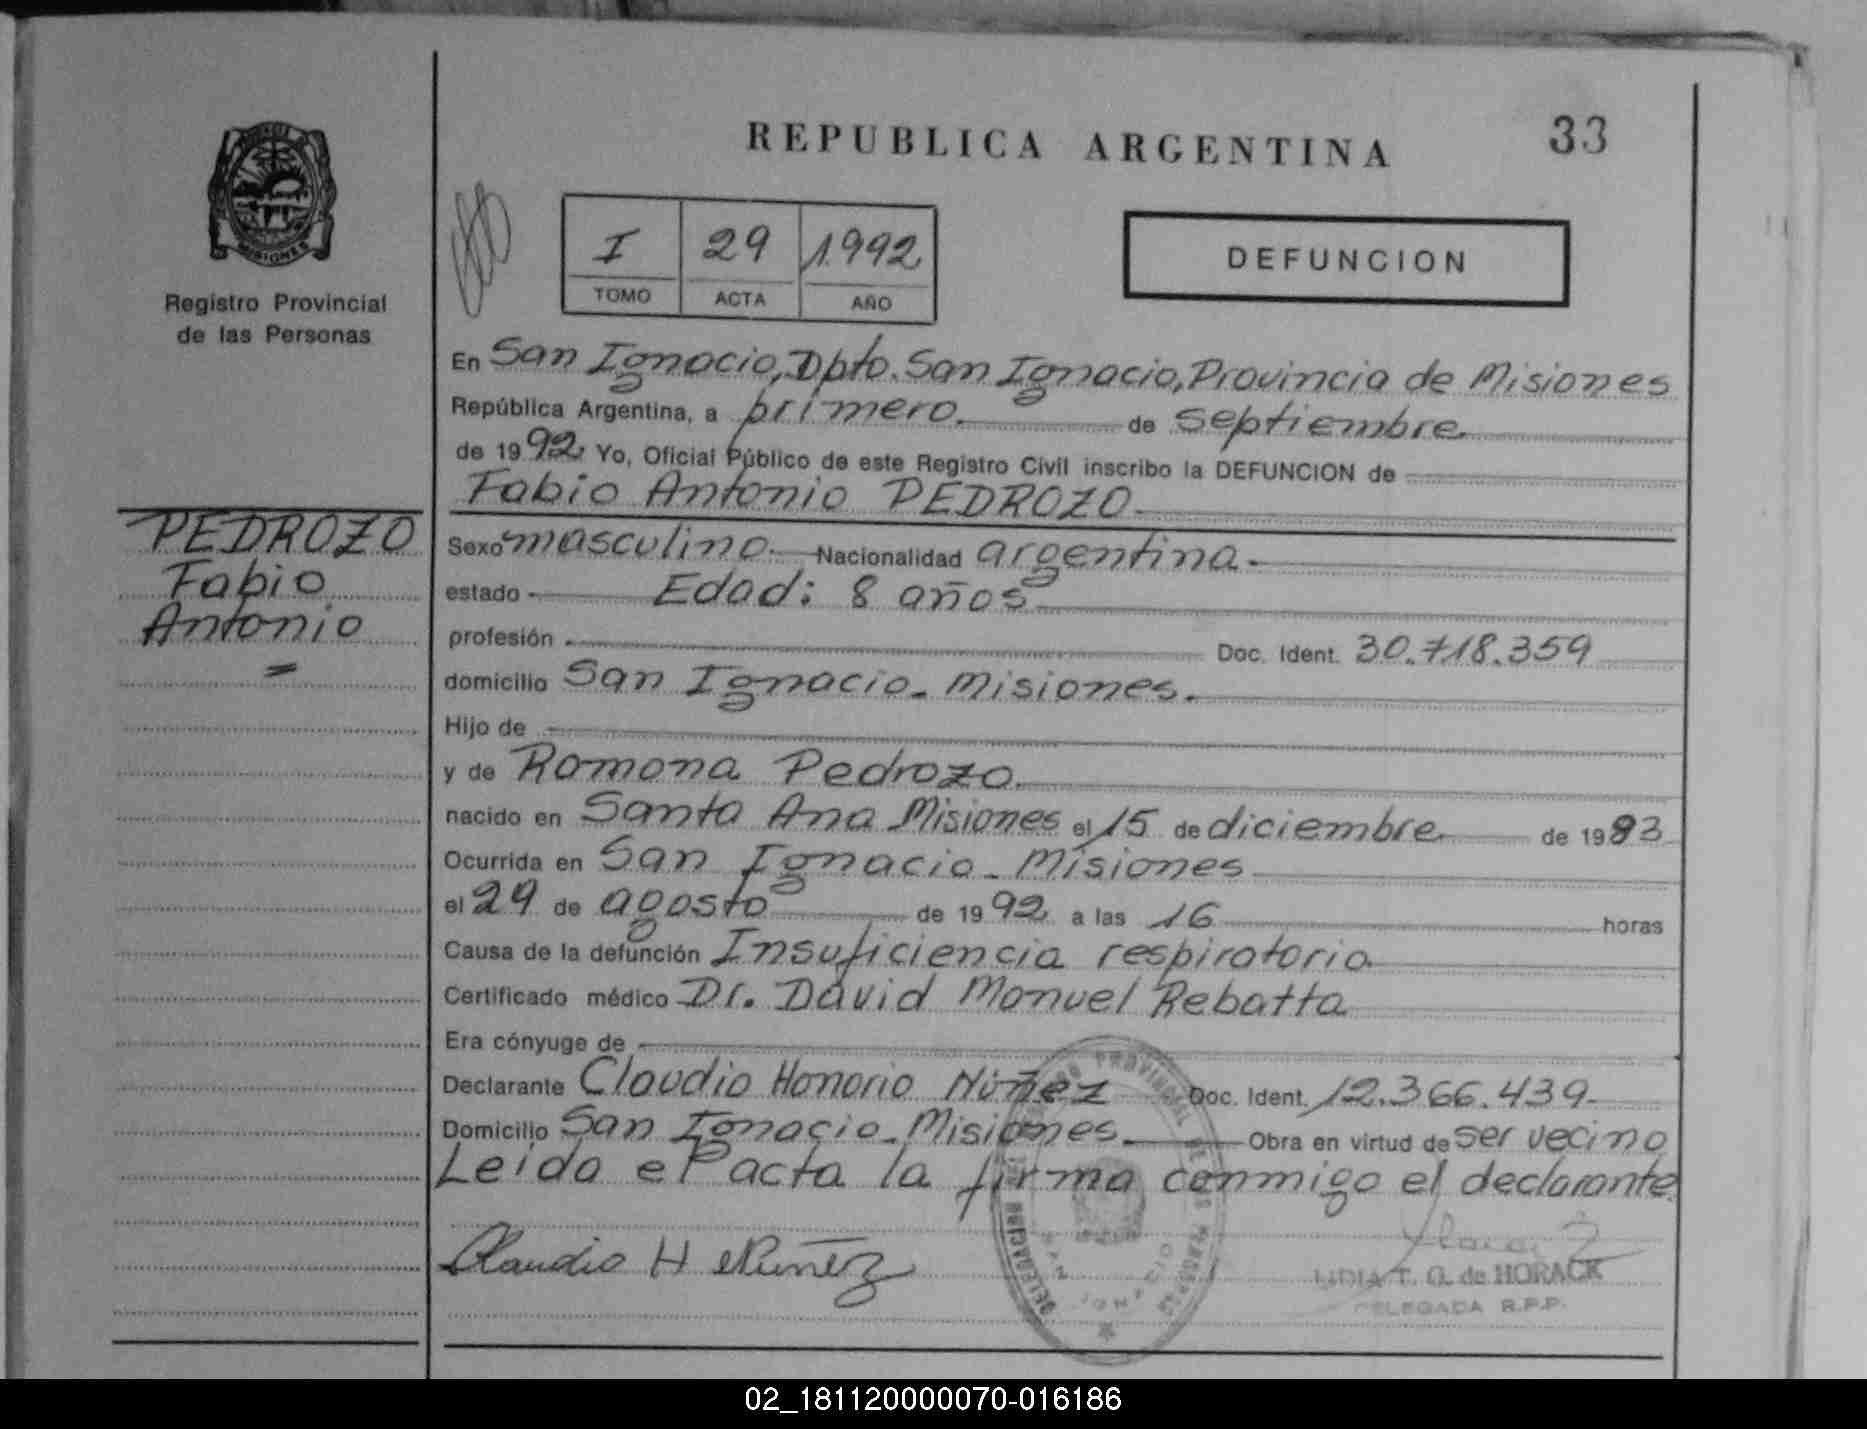 REPUBLICA ARGENTINA
33
I 29 1992
TOMO ACTA AÑO
DEFUNCION
MISIONES
Registro Provincial
de las Personas
PEDROZO
Fabio
Antonio
En San Ignacio, Dpto. San Ignacio, Provincia de Misiones
República Argentina, a primero. de septiembre.
de 1992 Yo, Oficial Público de este Registro Civil inscribo la DEFUNCION de
Fabio Antonio PEDROZO.
Sexo masculino. Nacionalidad argentina.
estado Edad: 8 años
profesión Doc. Ident. 30.718.359
domicilio San Ignacio. Misiones.
Hijo de
y de Ramona Pedrozo.
nacido en Santa Ana Misiones el 15 de diciembre de 1983
Ocurrida en San Ignacio. Misiones
el 29 de agosto de 1992 a las 16 horas
Causa de la defunción Insuficiencia respiratoria
Certificado médico Dr. David Manuel Rebatta
Era cónyuge de
Declarante Claudio Honorio Núñez Doc. Ident. 12.366.439.
Domicilio San Ignacio. Misiones. Obra en virtud de ser vecino
Leida el acta la firma conmigo el declarante.
Claudio H Nuñez
LIDIA T. G. de HORACK
DELEGADA R.P.P.
02_181120000070-016186